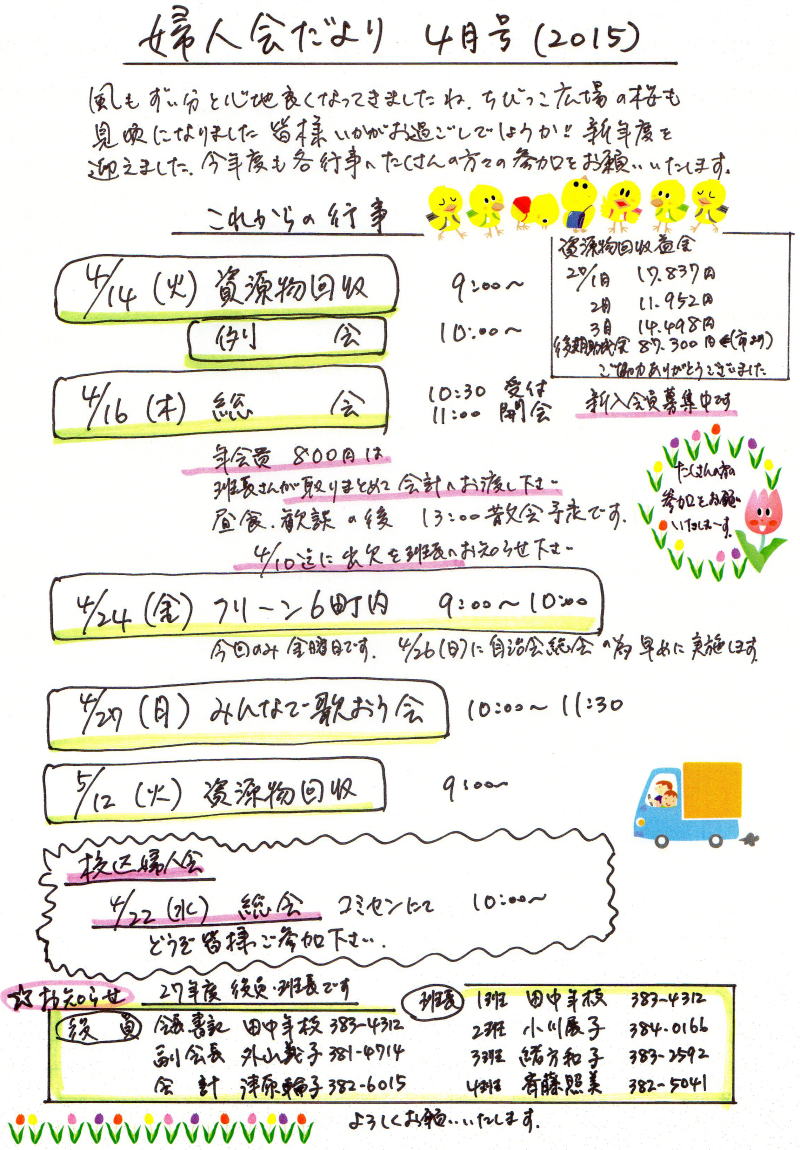 婦人会だより 4月号(2015)
風もずい分と心地良くなってきましたね。ちびっこ広場の桜も
見頃になりました 皆様いかがお過ごしでしょうか!! 新年度を
迎えました。今年度も各行事へたくさんの方々の参加をお願いいたします。
これからの行事
資源物回収益金
20/1月 17.837円
2月 11.952円
3月 14.498円
後期助成金 87.300円 ←(市より)
ご協力ありがとうございました
4/14 (火) 資源物回収 9:00~
例会 10:00~
4/16 (木) 総会 10:30 受付
11:00 開会
新入会員募集中です
年会費 800円は
班長さんが取りまとめて会計へお渡し下さい
昼食、歓談の後 13:00散会予定です。
4/10迄に出欠を班長へお知らせ下さい
たくさんの方の
参加をお願い
いたしまーす。
4/24 (金) クリーン6町内 9:00~10:00
今回のみ金曜日です。 4/26(日)に自治会総会の為早めに実施します
4/27 (月) みんなで歌おう会 10:00~11:30
5/12 (火) 資源物回収 9:00~
校区婦人会
4/22 (水) 総会 コミセンにて 10:00~
どうぞ皆様ご参加下さい.
☆お知らせ 27年度 役員・班長です
役員 会長書記 田中年校 383-4312
副会長 外山義子 381-4714
会計 津原輪子 382-6015
班長 1班 田中年校 383-4312
2班 小川展子 384-0166
3班 緒方和子 383-2592
4班 斉藤照美 382-5041
よろしくお願いいたします.